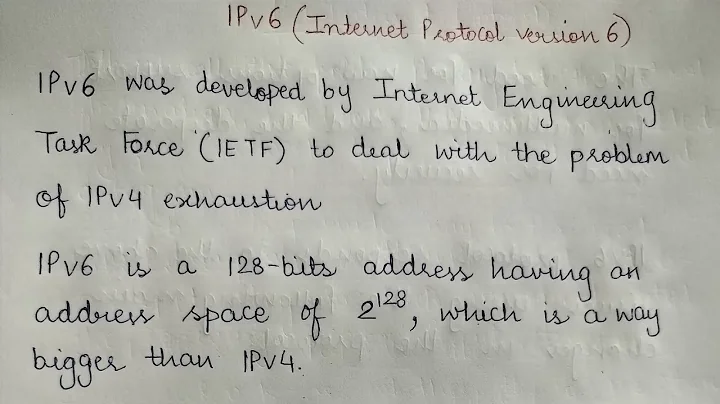 IPv6 (Internet Protocol version 6)
IPv6 was developed by Internet Engineering
Task Force (IETF) to deal with the problem
of IPv4 exhaustion
IPv6 is a 128-bits address having an
address space of 2¹²⁸, which is a way
bigger than IPv4.